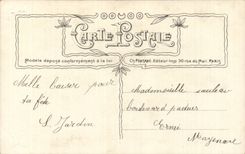 CARTE POSTALE
Modèle déposé conformément à la loi
Editeur Imp
Mille baiser pour
ta fête
S. Jardin
Mademoiselle
boulevard
Ernée
Mayenne